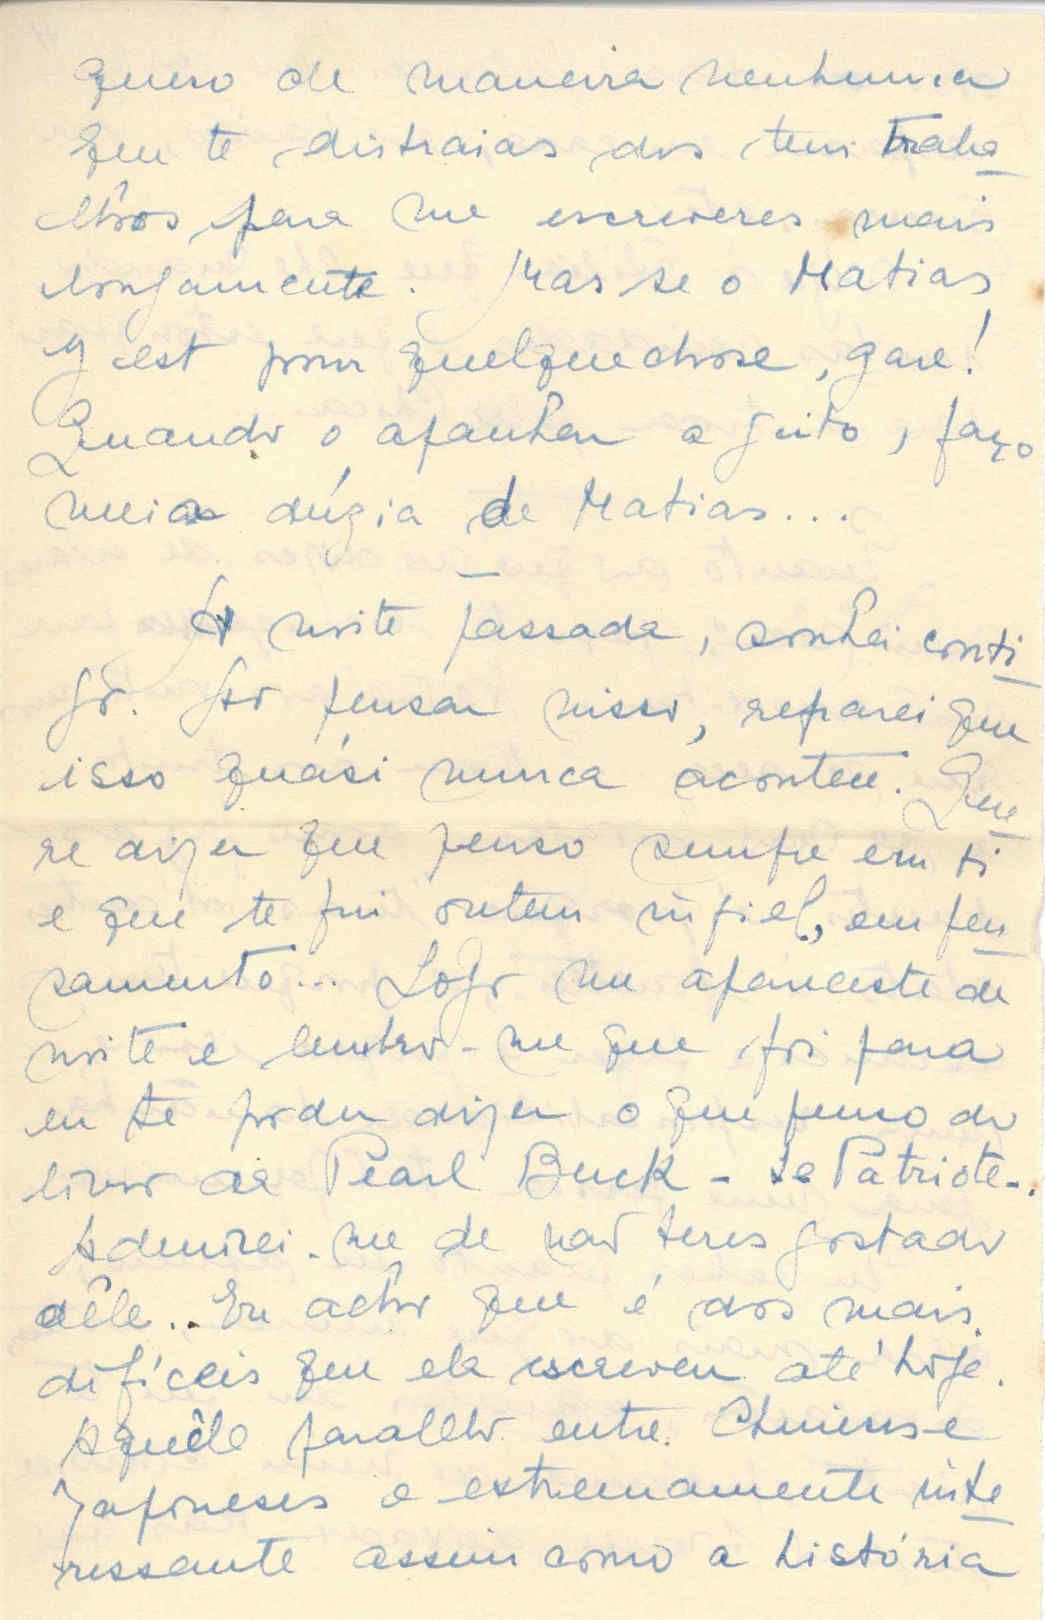 quero de maneira nenhuma
que te distraias dos teus traba
lhos para me escreveres mais
longamente. Mas se o Matias
y est pour quelque chose, gare!
Quando o apanhar a geito, faço
meia dúzia de Matias...
A noite passada, sonhei conti
go. Por pensar nisso, reparei que
isso quási nunca acontece. Que
re dizer que penso sempre em ti
e que te fui ontem infiel, em pen
samento... Logo me apareceste de
noite e lembro-me que foi para
eu te poder dizer o que penso do
livro de Pearl Buck - Le Patriote -.
Admirei-me de não teres gostado
dêle.. Eu acho que é dos mais
difíceis que ela escreveu até hoje.
Aquêle paralelo entre Chineses e
Japoneses é extremamente inte
ressante assim como a história